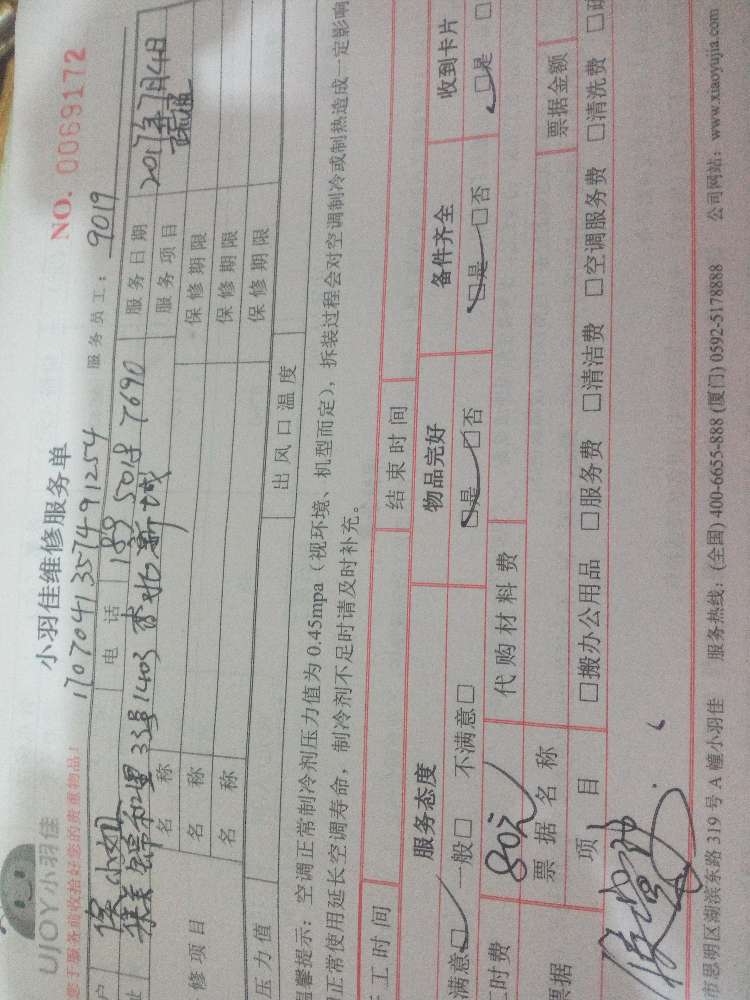 UJOY小羽佳
小羽佳维修服务单
NO. 0069172
您于服务前收拾好您的贵重物品!
170704135749 1254
服务员工: 9019
户
小姐
电 话
189 5018 7690
服务日期
2017年7月4日
址
锦和里 35号1403
新城
服务项目
修项目
名 称
保修期限
名 称
保修期限
名 称
保修期限
压力值
出风口温度
温馨提示: 空调正常制冷剂压力值为 0.45mpa (视环境、机型而定), 拆装过程会对空调制冷或制热造成一定影响
正常使用延长空调寿命, 制冷剂不足时请及时补充。
工时间
结束时间
服务态度
物品完好
备件齐全
收到卡片
满意□ 一般□ 不满意□
□是 □否
□是 □否
□是 □
工时费
80元
代购材料费
票据
票据名称
票据金额
项 目
□搬办公用品 □服务费 □清洁费 □空调服务费 □清洗费 □
市思明区湖滨东路 319 号 A 幢小羽佳
服务热线: (全国) 400-6655-888 (厦门) 0592-5178888
公司网站: www.xiaoyujia.com